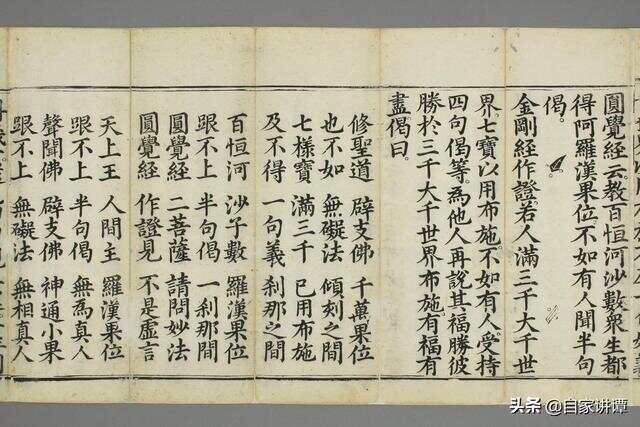 圓覺經云教百恒河沙數衆生都
得阿羅漢果位不如有人聞半句
偈。
金剛經作證。若人滿三千大千世
界。七寶以用布施。不如有人受持
四句偈等。為他人再說其福勝彼
勝於三千大千世界布施有福有
盡。偈曰。
修聖道 辟支佛 千萬果位
也不如 無礙法 傾刻之間
七樣寶 滿三千 已用布施
及不得 一句義 剎那之間
百恒河 沙子數 羅漢果位
跟不上 半句偈 一剎那間
圓覺經 二菩薩 請問妙法
圓覺經 作證見 不是虛言
天上王 人間主 羅漢果位
跟不上 半句偈 無為真人
聲聞佛 辟支佛 神通小果
跟不上 無礙法 無相真人
头条 @自家讲谭